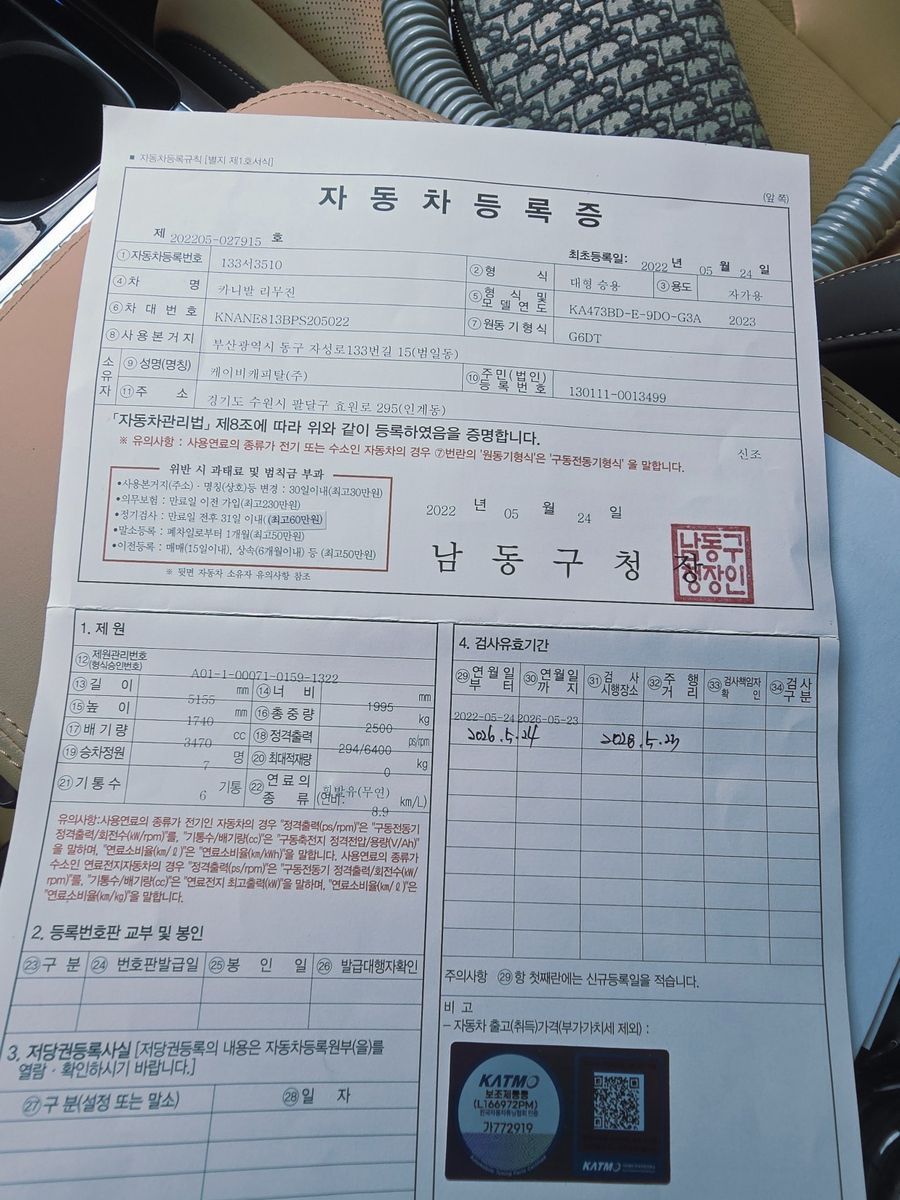 ■ 자동차등록규칙 [별지 제1호서식]
(앞 쪽)
자 동 차 등 록 증
제 202205-027915 호
최초등록일: 2022 년 05 월 24 일
①자동차등록번호 133서3510 ②형 식 대형 승용 ③용도 자가용
④차 명 카니발 리무진 ⑤형 식 및 모델연도 KA473BD-E-9DO-G3A 2023
⑥차 대 번 호 KNANE813BPS205022 ⑦원동기형식 G6DT
⑧사 용 본 거 지 부산광역시 동구 자성로133번길 15(범일동)
소유자 ⑨성명(명칭) 케이비캐피탈(주) ⑩주민(법인)등록번호 130111-0013499
⑪주 소 경기도 수원시 팔달구 효원로 295(인계동)
「자동차관리법」 제8조에 따라 위와 같이 등록하였음을 증명합니다.
※ 유의사항 : 사용연료의 종류가 전기 또는 수소인 자동차의 경우 ⑦번란의 '원동기형식'은 '구동전동기형식' 을 말합니다.
신조
위반 시 과태료 및 범칙금 부과
•사용본거지(주소)·명칭(상호)등 변경 : 30일이내(최고30만원)
•의무보험 : 만료일 이전 가입(최고230만원)
•정기검사 : 만료일 전후 31일 이내(최고60만원)
•말소등록 : 폐차일로부터 1개월(최고50만원)
•이전등록 : 매매(15일이내), 상속(6개월이내) 등 (최고50만원)
※ 뒷면 자동차 소유자 유의사항 참조
2022 년 05 월 24 일
남 동 구 청 장
남동구
청장인
1. 제 원
⑫제원관리번호(형식승인번호) A01-1-00071-0159-1322
⑬길 이 5155 mm ⑭너 비 1995 mm
⑮높 이 1740 mm ⑯총 중 량 2500 kg
⑰배 기 량 3470 cc ⑱정격출력 294/6400 ps/rpm
⑲승차정원 7 명 ⑳최대적재량 0 kg
㉑기 통 수 6 기통 ㉒연 료 의 종 류 휘발유(무연) (연비: 8.9 km/L)
유의사항:사용연료의 종류가 전기인 자동차의 경우 "정격출력(ps/rpm)"은 "구동전동기
정격출력/회전수(kW/rpm)"를, "기통수/배기량(cc)"은 "구동축전지 정격전압/용량(V/Ah)"
을 말하며, "연료소비율(km/ℓ)"은 "연료소비율(km/kWh)"을 말합니다. 사용연료의 종류가
수소인 연료전지자동차의 경우 "정격출력(ps/rpm)"은 "구동전동기 정격출력/회전수(kW/
rpm)"를, "기통수/배기량(cc)"은 "연료전지 최고출력(kW)"을 말하며, "연료소비율(km/ℓ)"은
"연료소비율(km/kg)"을 말합니다.
2. 등록번호판 교부 및 봉인
㉓구 분 ㉔번호판발급일 ㉕봉 인 일 ㉖발급대행자확인
3. 저당권등록사실 [저당권등록의 내용은 자동차등록원부(을)를
열람·확인하시기 바랍니다.]
㉗구 분(설정 또는 말소) ㉘일 자
4. 검사유효기간
㉙연 월 일 부 터 ㉚연 월 일 까 지 ㉛검 사 시행장소 ㉜주 행 거 리 ㉝검사책임자 확 인 ㉞검 사 구 분
2022-05-24 2026-05-23
2026.5.24 2028.5.23
주의사항 ㉙항 첫째란에는 신규등록일을 적습니다.
비 고
– 자동차 출고(취득)가격(부가가치세 제외) :
KATMO
보조제동등
(L166972PM)
한국자동차튜닝협회 인증
가772919
KATMO